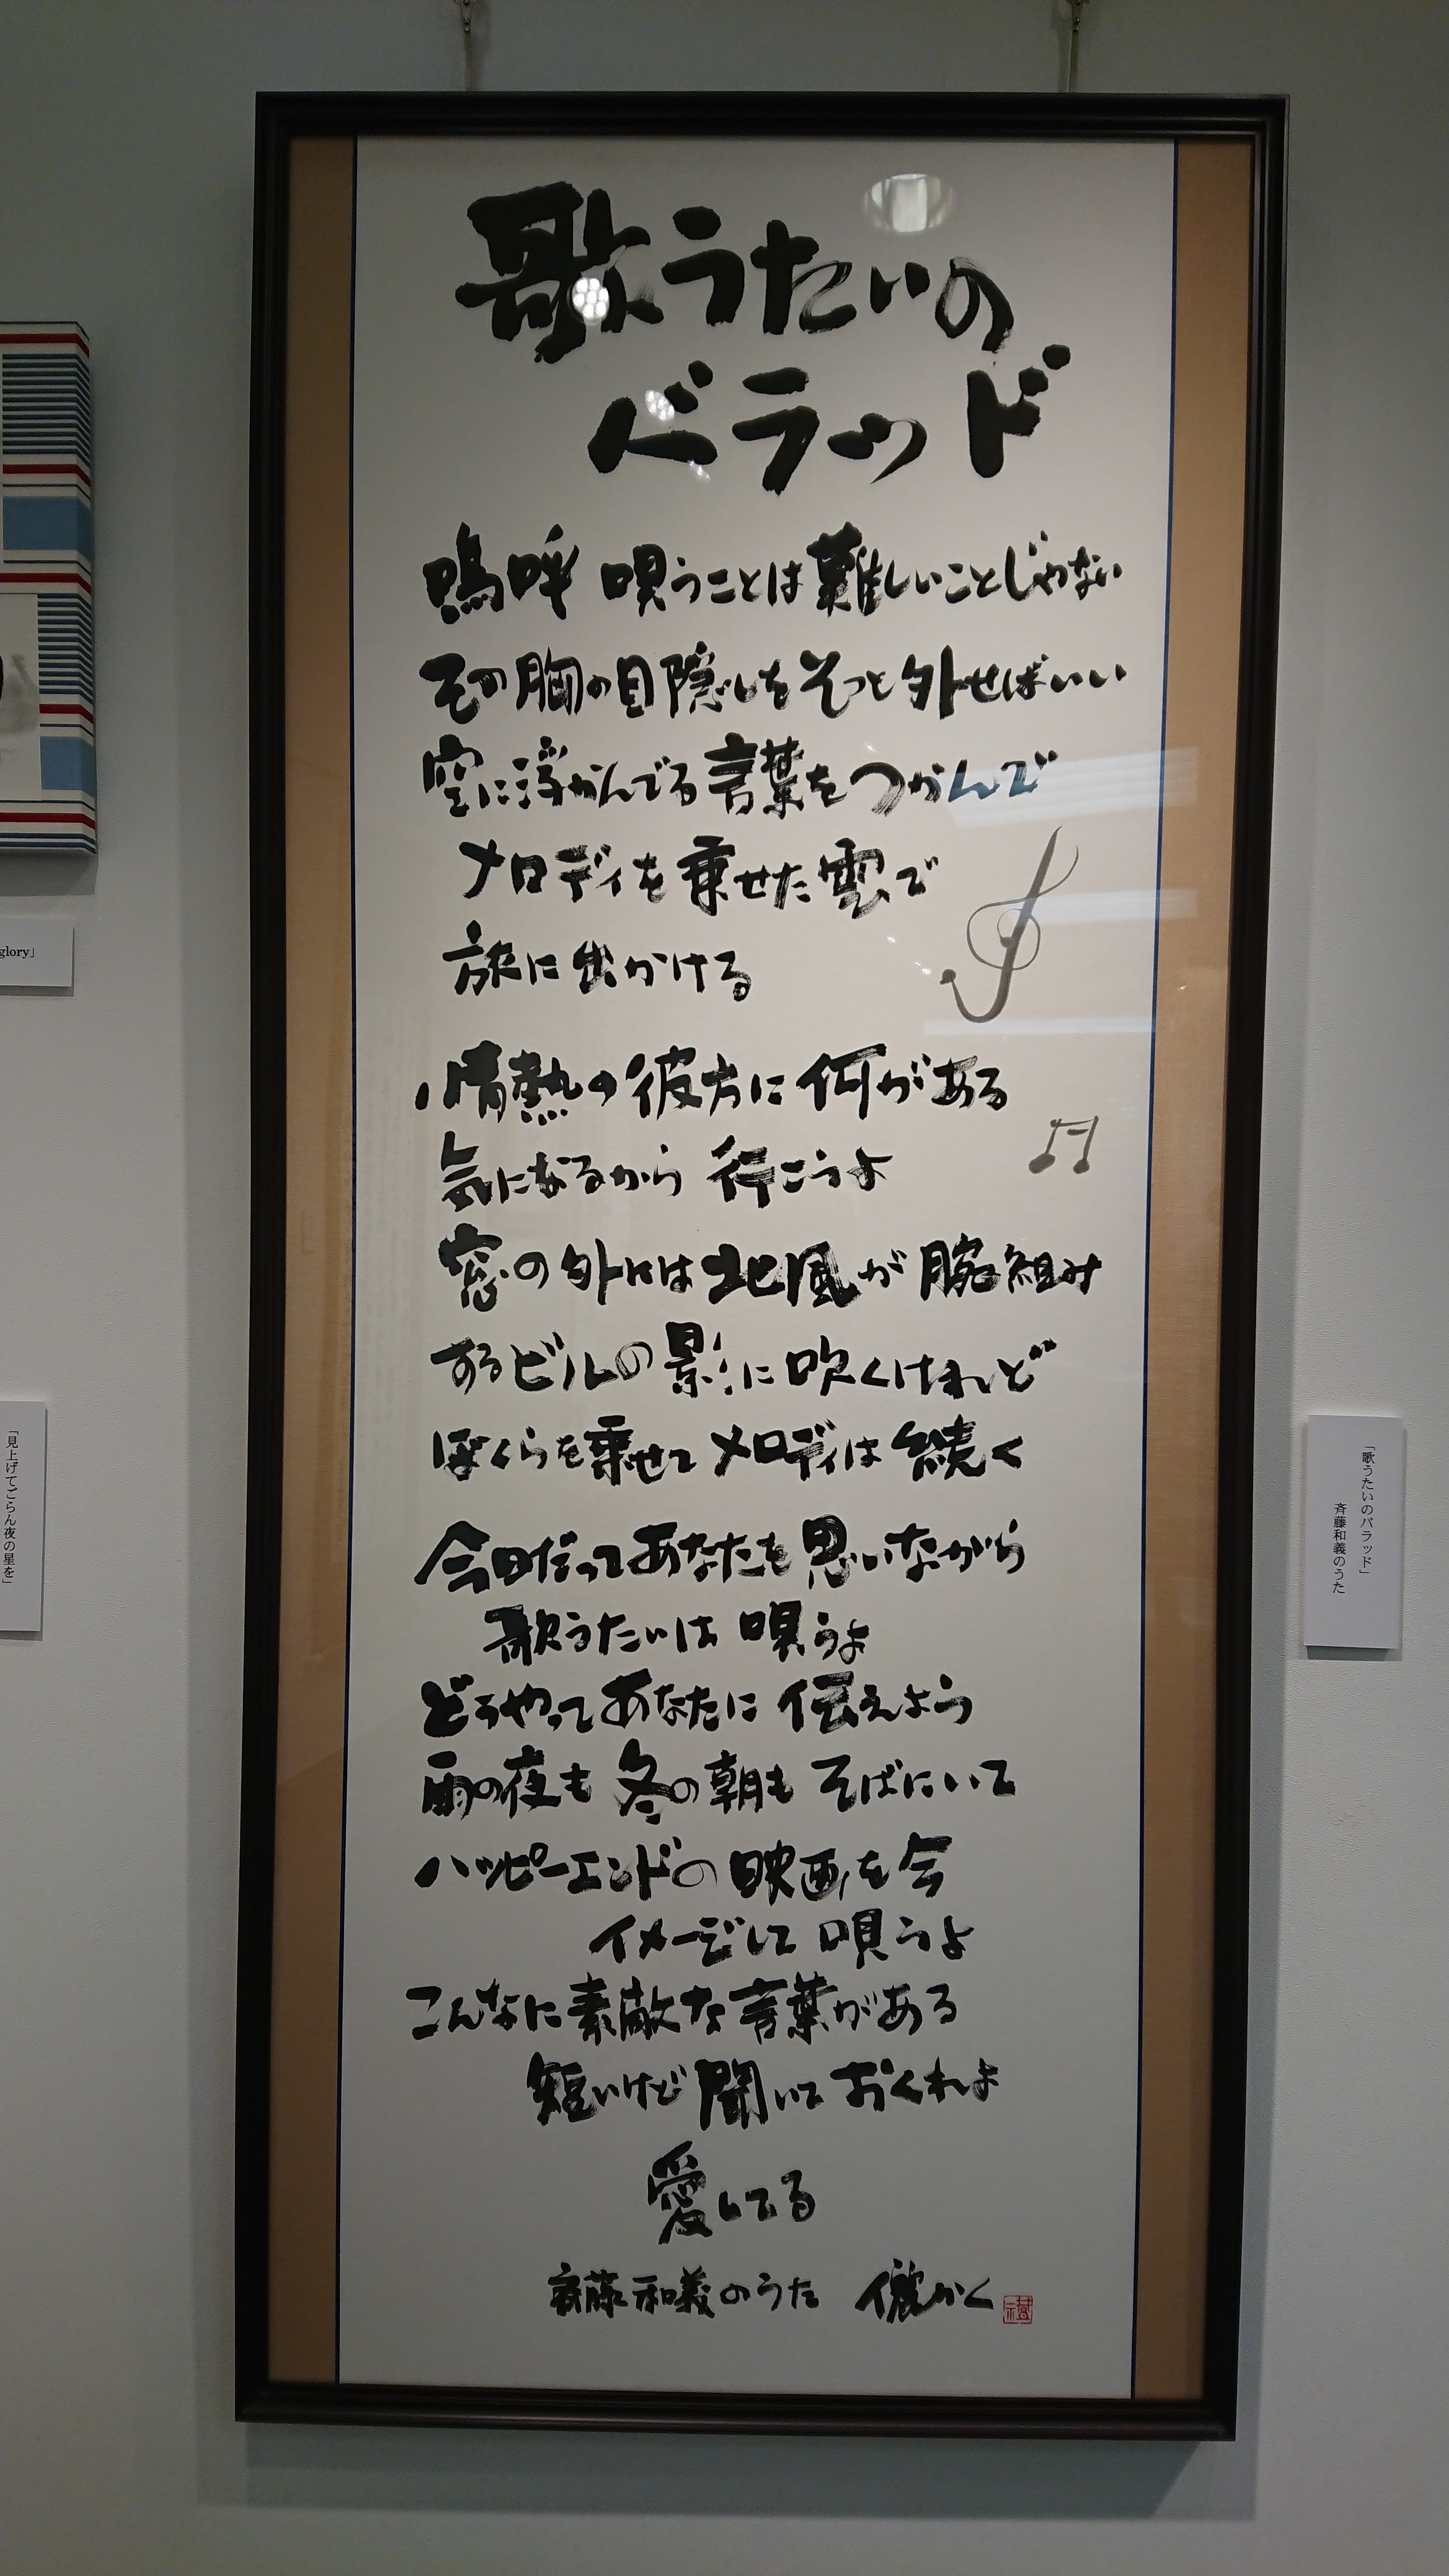 歌うたいの
バラッド
嗚呼 唄うことは難しいことじゃない
その胸の目隠しをそっと外せばいい
空に浮かんでる言葉をつかんで
メロディを乗せた雲で
旅に出かける
情熱の彼方に何がある
気になるから 行こうよ
窓の外には北風が腕組み
するビルの影に吹くけれど
ぼくらを乗せて メロディは続く
今日だってあなたを思いながら
歌うたいは 唄うよ
どうやってあなたに 伝えよう
雨の夜も 冬の朝も そばにいて
ハッピーエンドの映画を今
イメージして 唄うよ
こんなに素敵な言葉がある
短いけど 聞いて おくれよ
愛してる
斉藤和義のうた かく
「歌うたいのバラッド」
斉藤和義のうた
glory」
「見上げてごらん夜の星を」